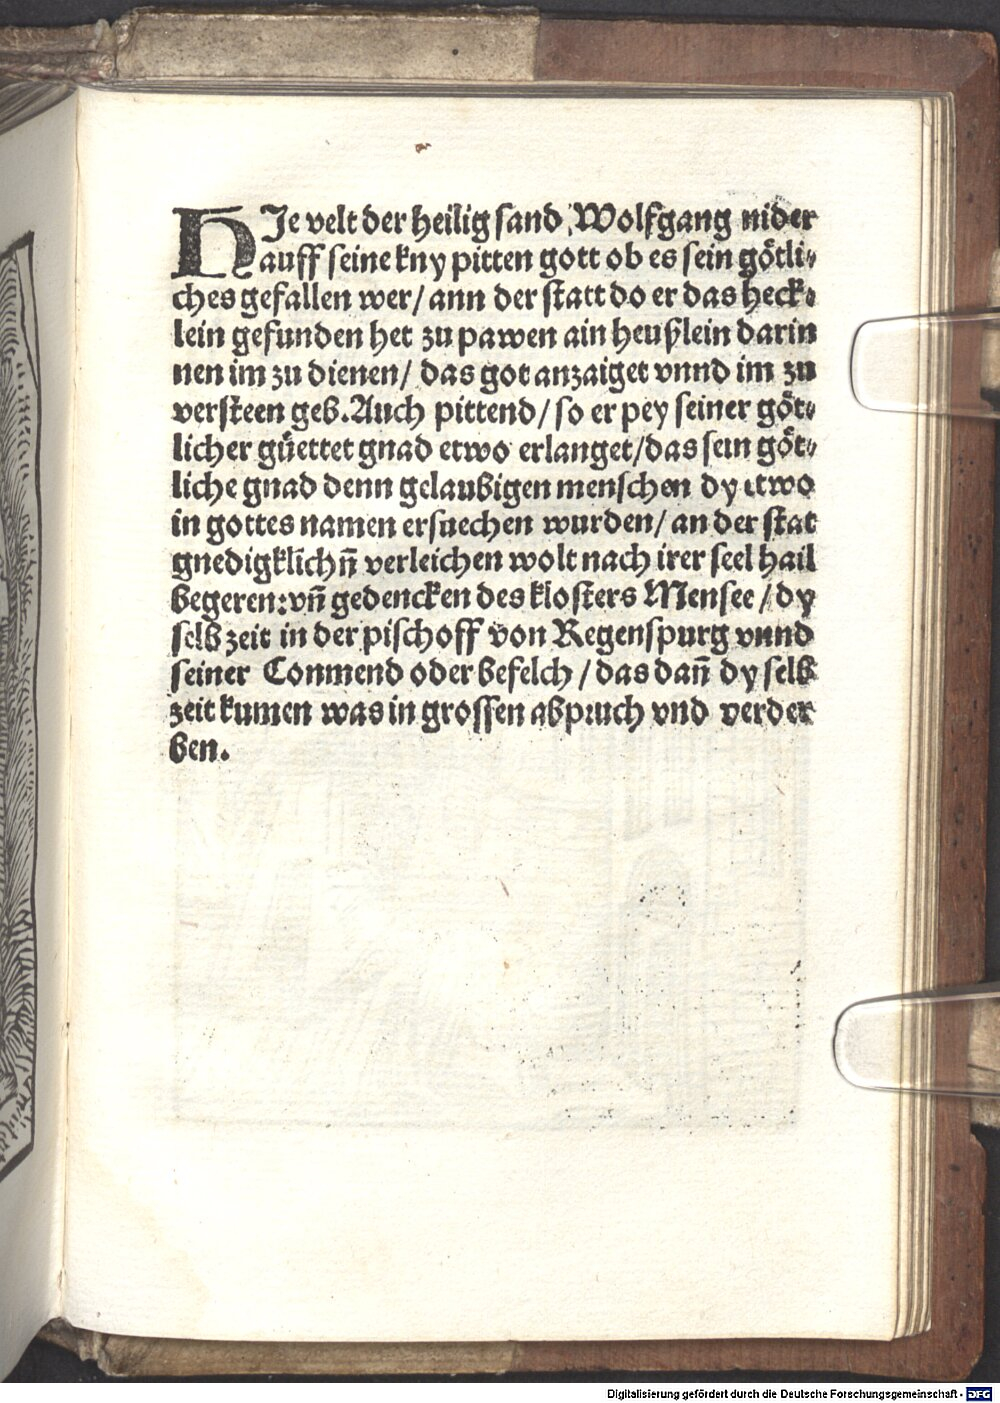 HJe velt der heilig sand Wolfgang nider
auff seine kny pitten gott ob es sein götli⸗
ches gefallen wer/ ann der statt do er das heck⸗
lein gefunden het zu pawen ain heußlein darin
nen im zu dienen/ das got anzaiget vnnd im zu
versteen geb. Auch pittend/ so er pey seiner göt⸗
licher güettet gnad etwo erlanget/ das sein göt⸗
liche gnad denn gelaubigen menschen dy etwo
in gottes namen ersuechen wurden/ an der stat
gnedigklichn̄ verleichen wolt nach irer seel hail
begeren: vn̄ gedencken des klosters Mensee/ dy
selb zeit in der pischoff von Regenspurg vnnd
seiner Conmend oder befelch/ das dan̄ dy selb
zeit kumen was in grossen abpruch vnd verder
ben.
Digitalisierung gefördert durch die Deutsche Forschungsgemeinschaft - DFG